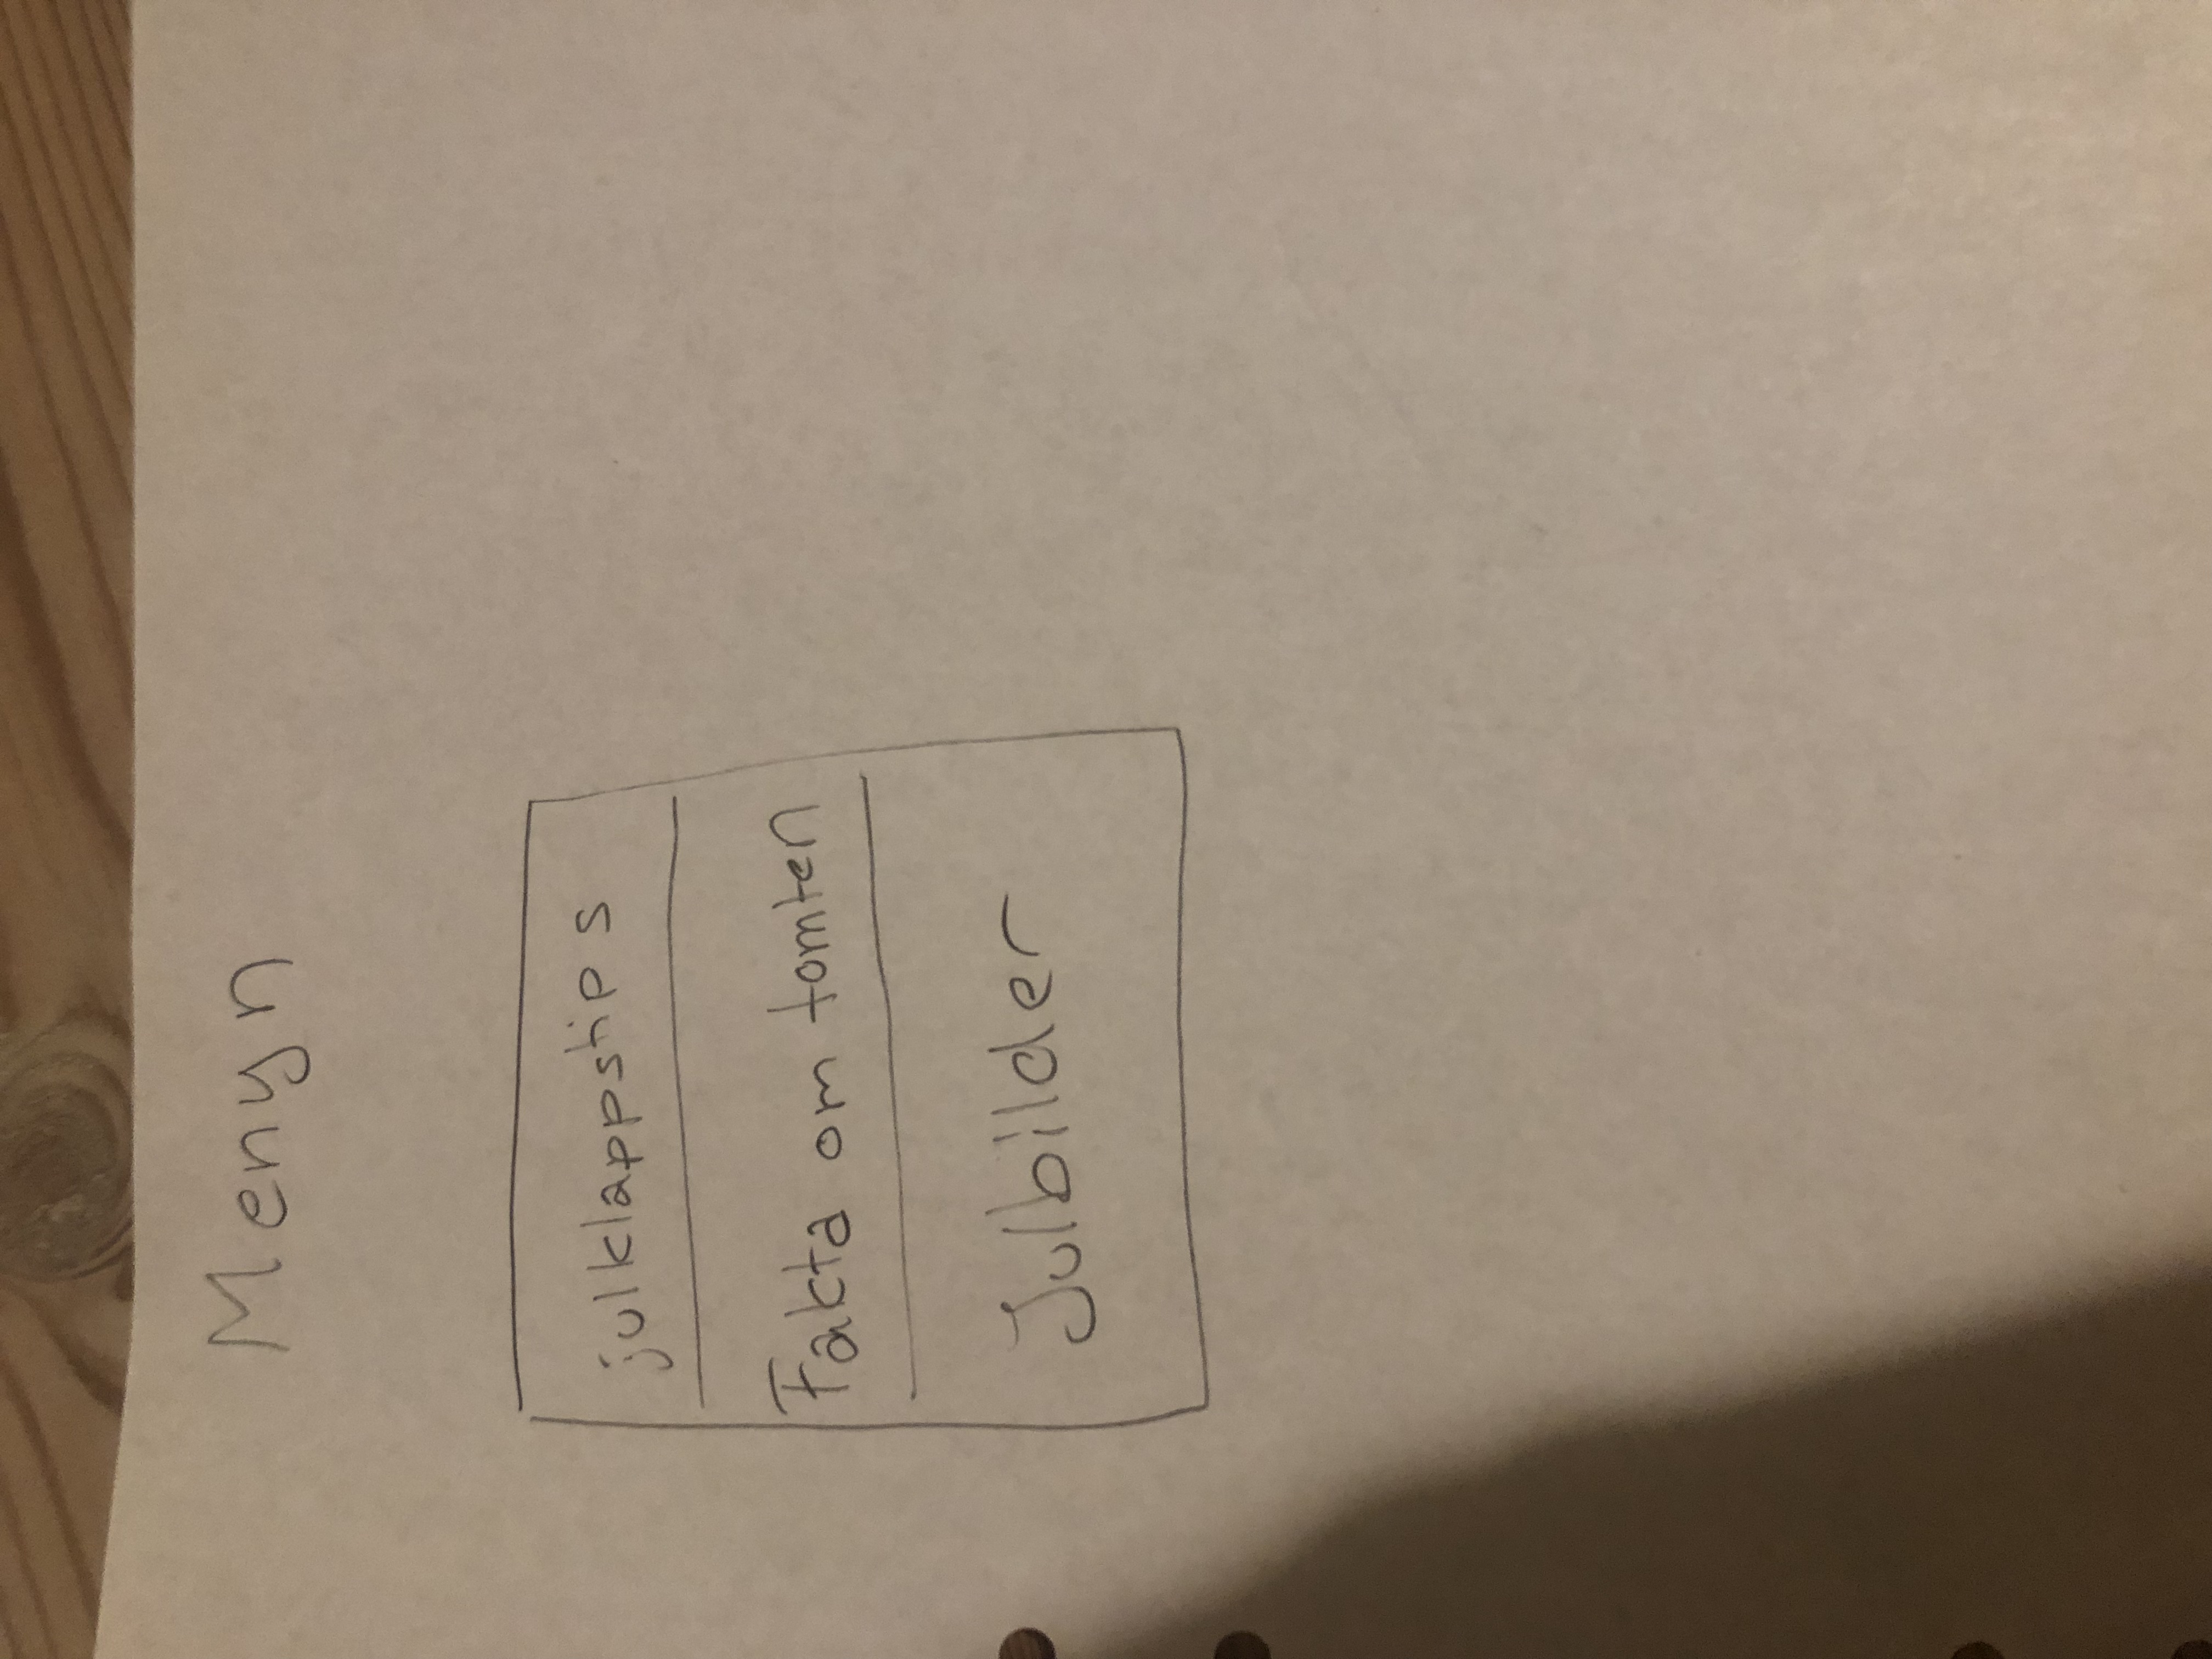 Menyn
julklappstips
Fakta om tomten
Julbilder